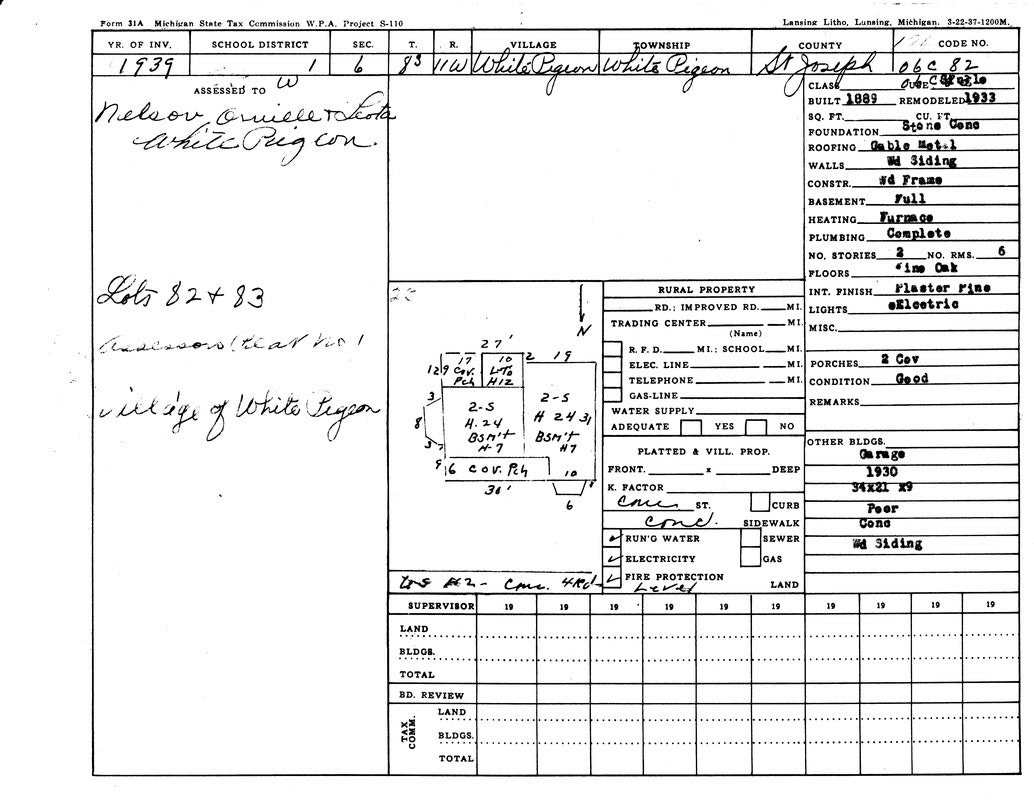 Form 31A Michigan State Tax Commission W.P.A. Project S-110
Lansing Litho, Lunsing, Michigan. 3-22-37-1200M.
YR. OF INV. SCHOOL DISTRICT SEC. T. R. VILLAGE TOWNSHIP COUNTY CODE NO.
1939 1 6 8S 11W White Pigeon White Pigeon St Joseph 06C 82
ASSESSED TO W
Nelson, Orville & Leota
White Pigeon.
Lots 82 & 83
Assessors Plat No 1
village of White Pigeon
N
27'
17 10 2 19
12 9 Cov. Pch
L-To H12
3
8
3
2-S
H. 24
BSM't
H-7
2-S
H 24 31
BSM't
H7
9 6 Cov. Pch 10
36'
6
U-S #2 - Conc. 4Rd
RURAL PROPERTY
RD.; IMPROVED RD. MI.
TRADING CENTER MI.
(Name)
R. F. D. MI.; SCHOOL MI.
ELEC. LINE MI.
TELEPHONE MI.
GAS-LINE
WATER SUPPLY
ADEQUATE YES NO
PLATTED & VILL. PROP.
FRONT. x DEEP
K. FACTOR
Conc ST. CURB
Conc. SIDEWALK
RUN'G WATER SEWER
ELECTRICITY GAS
FIRE PROTECTION
Level LAND
CLASS
BUILT 1889 REMODELED 1933
SQ. FT. CU. FT.
FOUNDATION Stone Conc
ROOFING Gable Metal
WALLS Wd Siding
CONSTR. Wd Frame
BASEMENT Full
HEATING Furnace
PLUMBING Complete
NO. STORIES 2 NO. RMS. 6
FLOORS Pine Oak
INT. FINISH Plaster Pine
LIGHTS eElectric
MISC.
PORCHES 2 Cov
CONDITION Good
REMARKS
OTHER BLDGS.
Garage
1930
34x21 x9
Poor
Conc
Wd Siding
SUPERVISOR 19 19 19 19 19 19 19 19 19 19
LAND
BLDGS.
TOTAL
BD. REVIEW
TAX COMM.
LAND
BLDGS.
TOTAL